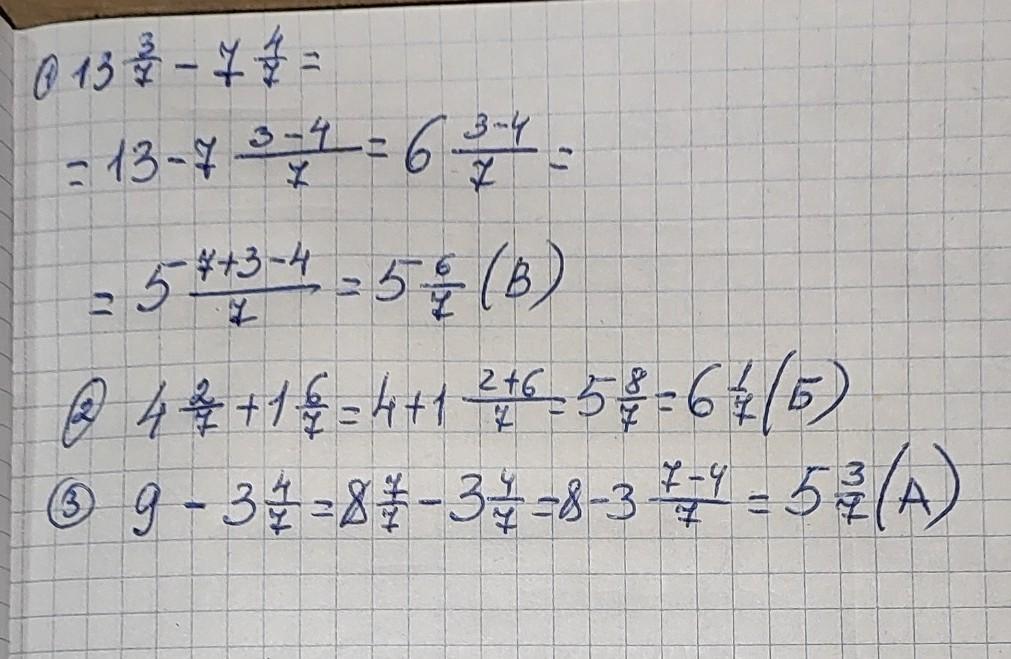 ① 13 3/7 - 7 4/7 =
= 13-7 (3-4)/7 = 6 (3-4)/7 =
= 5 (7+3-4)/7 = 5 6/7 (В)
② 4 2/7 + 1 6/7 = 4+1 (2+6)/7 = 5 8/7 = 6 1/7 (Б)
③ 9 - 3 4/7 = 8 7/7 - 3 4/7 = 8-3 (7-4)/7 = 5 3/7 (А)